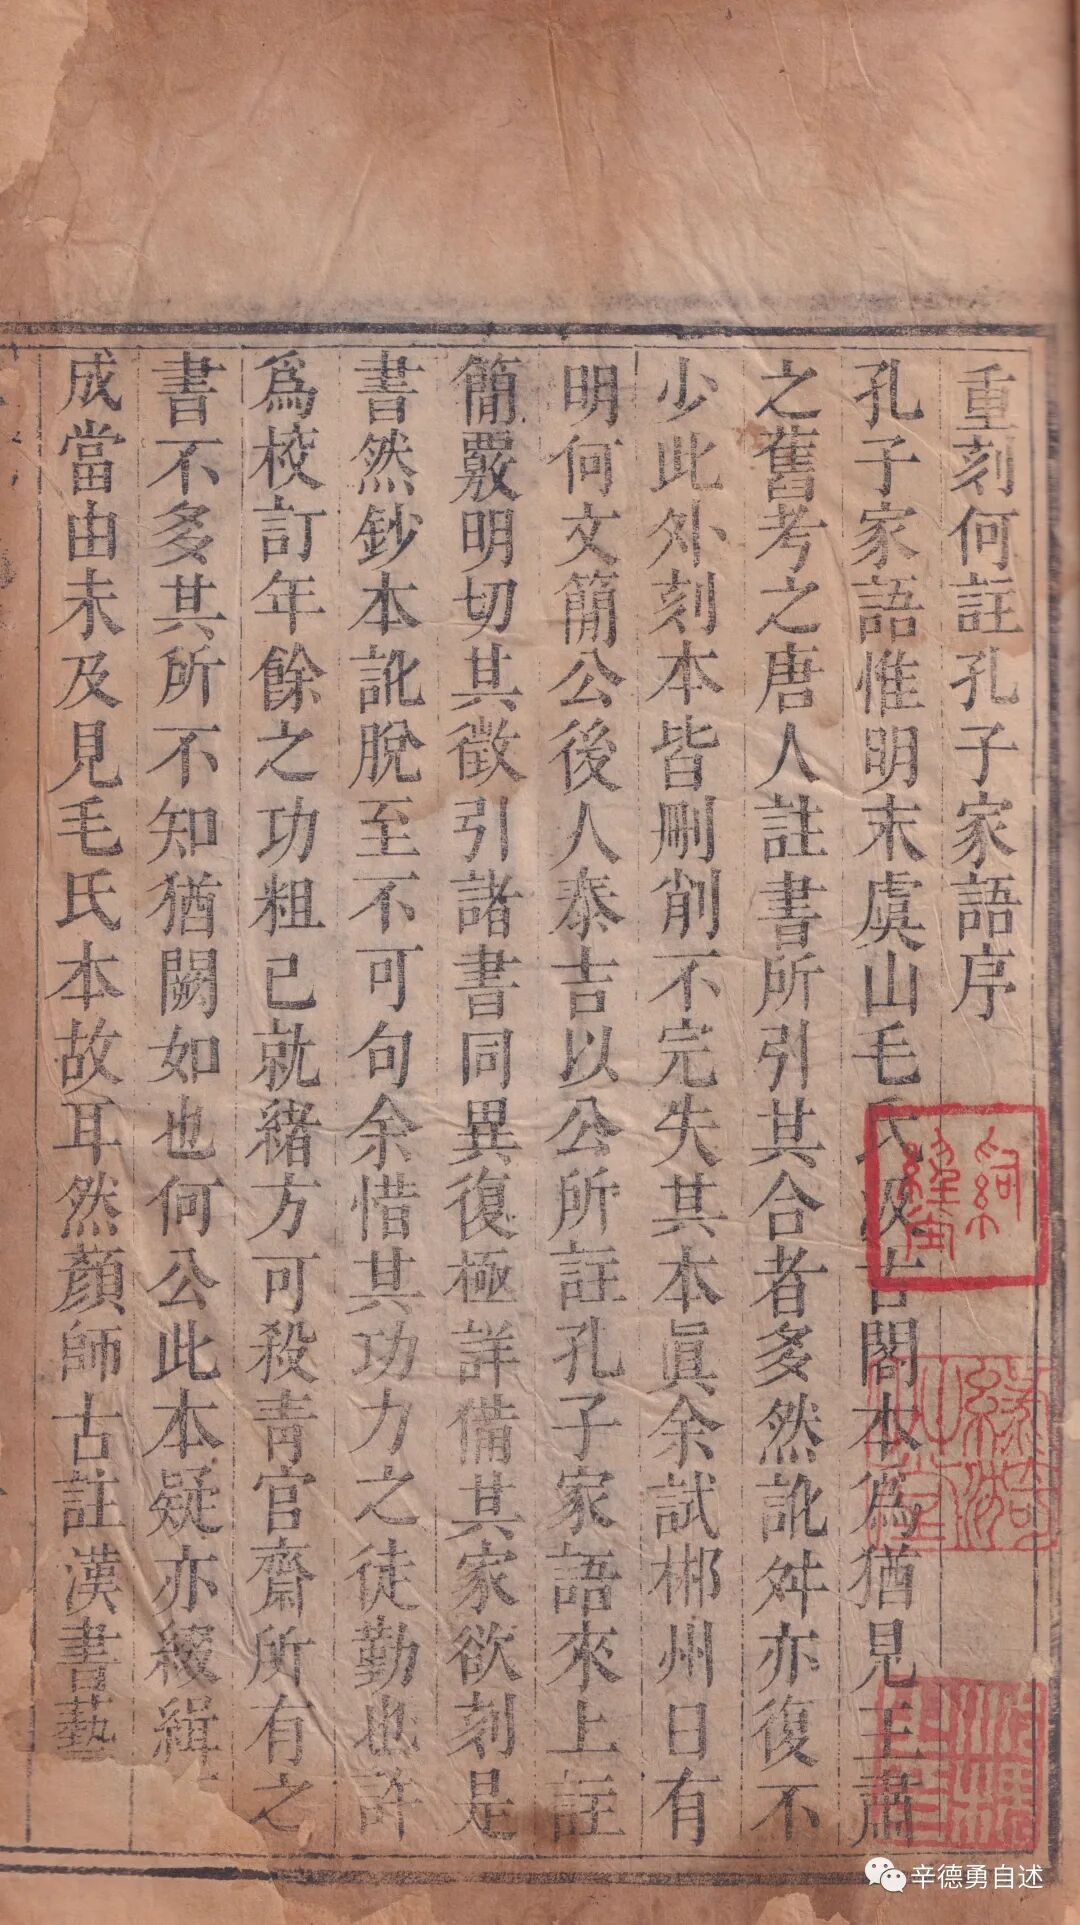 重刻何註孔子家語序
孔子家語惟明末虞山毛氏汲古閣本爲猶見王肅
之舊考之唐人註書所引其合者多然訛舛亦復不
少此外刻本皆刪削不完失其本眞余試郴州日有
明何文簡公後人泰吉以公所註孔子家語來上註
簡覈明切其徵引諸書同異復極詳備其家欲刻是
書然鈔本訛脫至不可句余惜其功力之徒勤也許
爲校訂年餘之功粗已就緒方可殺靑官齋所有之
書不多其所不知猶闕如也何公此本疑亦綴緝
成當由未及見毛氏本故耳然顏師古註漢書藝
辛德勇自述